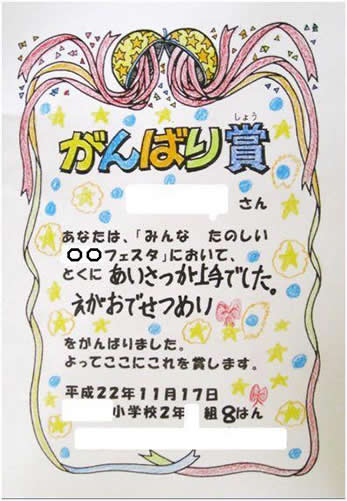 しょう
がんばり賞
さん
あなたは、「みんな　たのしい
〇〇フェスタ」において、
とくに あいさつが上手でした。
えがおでせつめい
をがんばりました。
よってここにこれを賞します。
平成22年11月17日
小学校2年 組 8はん